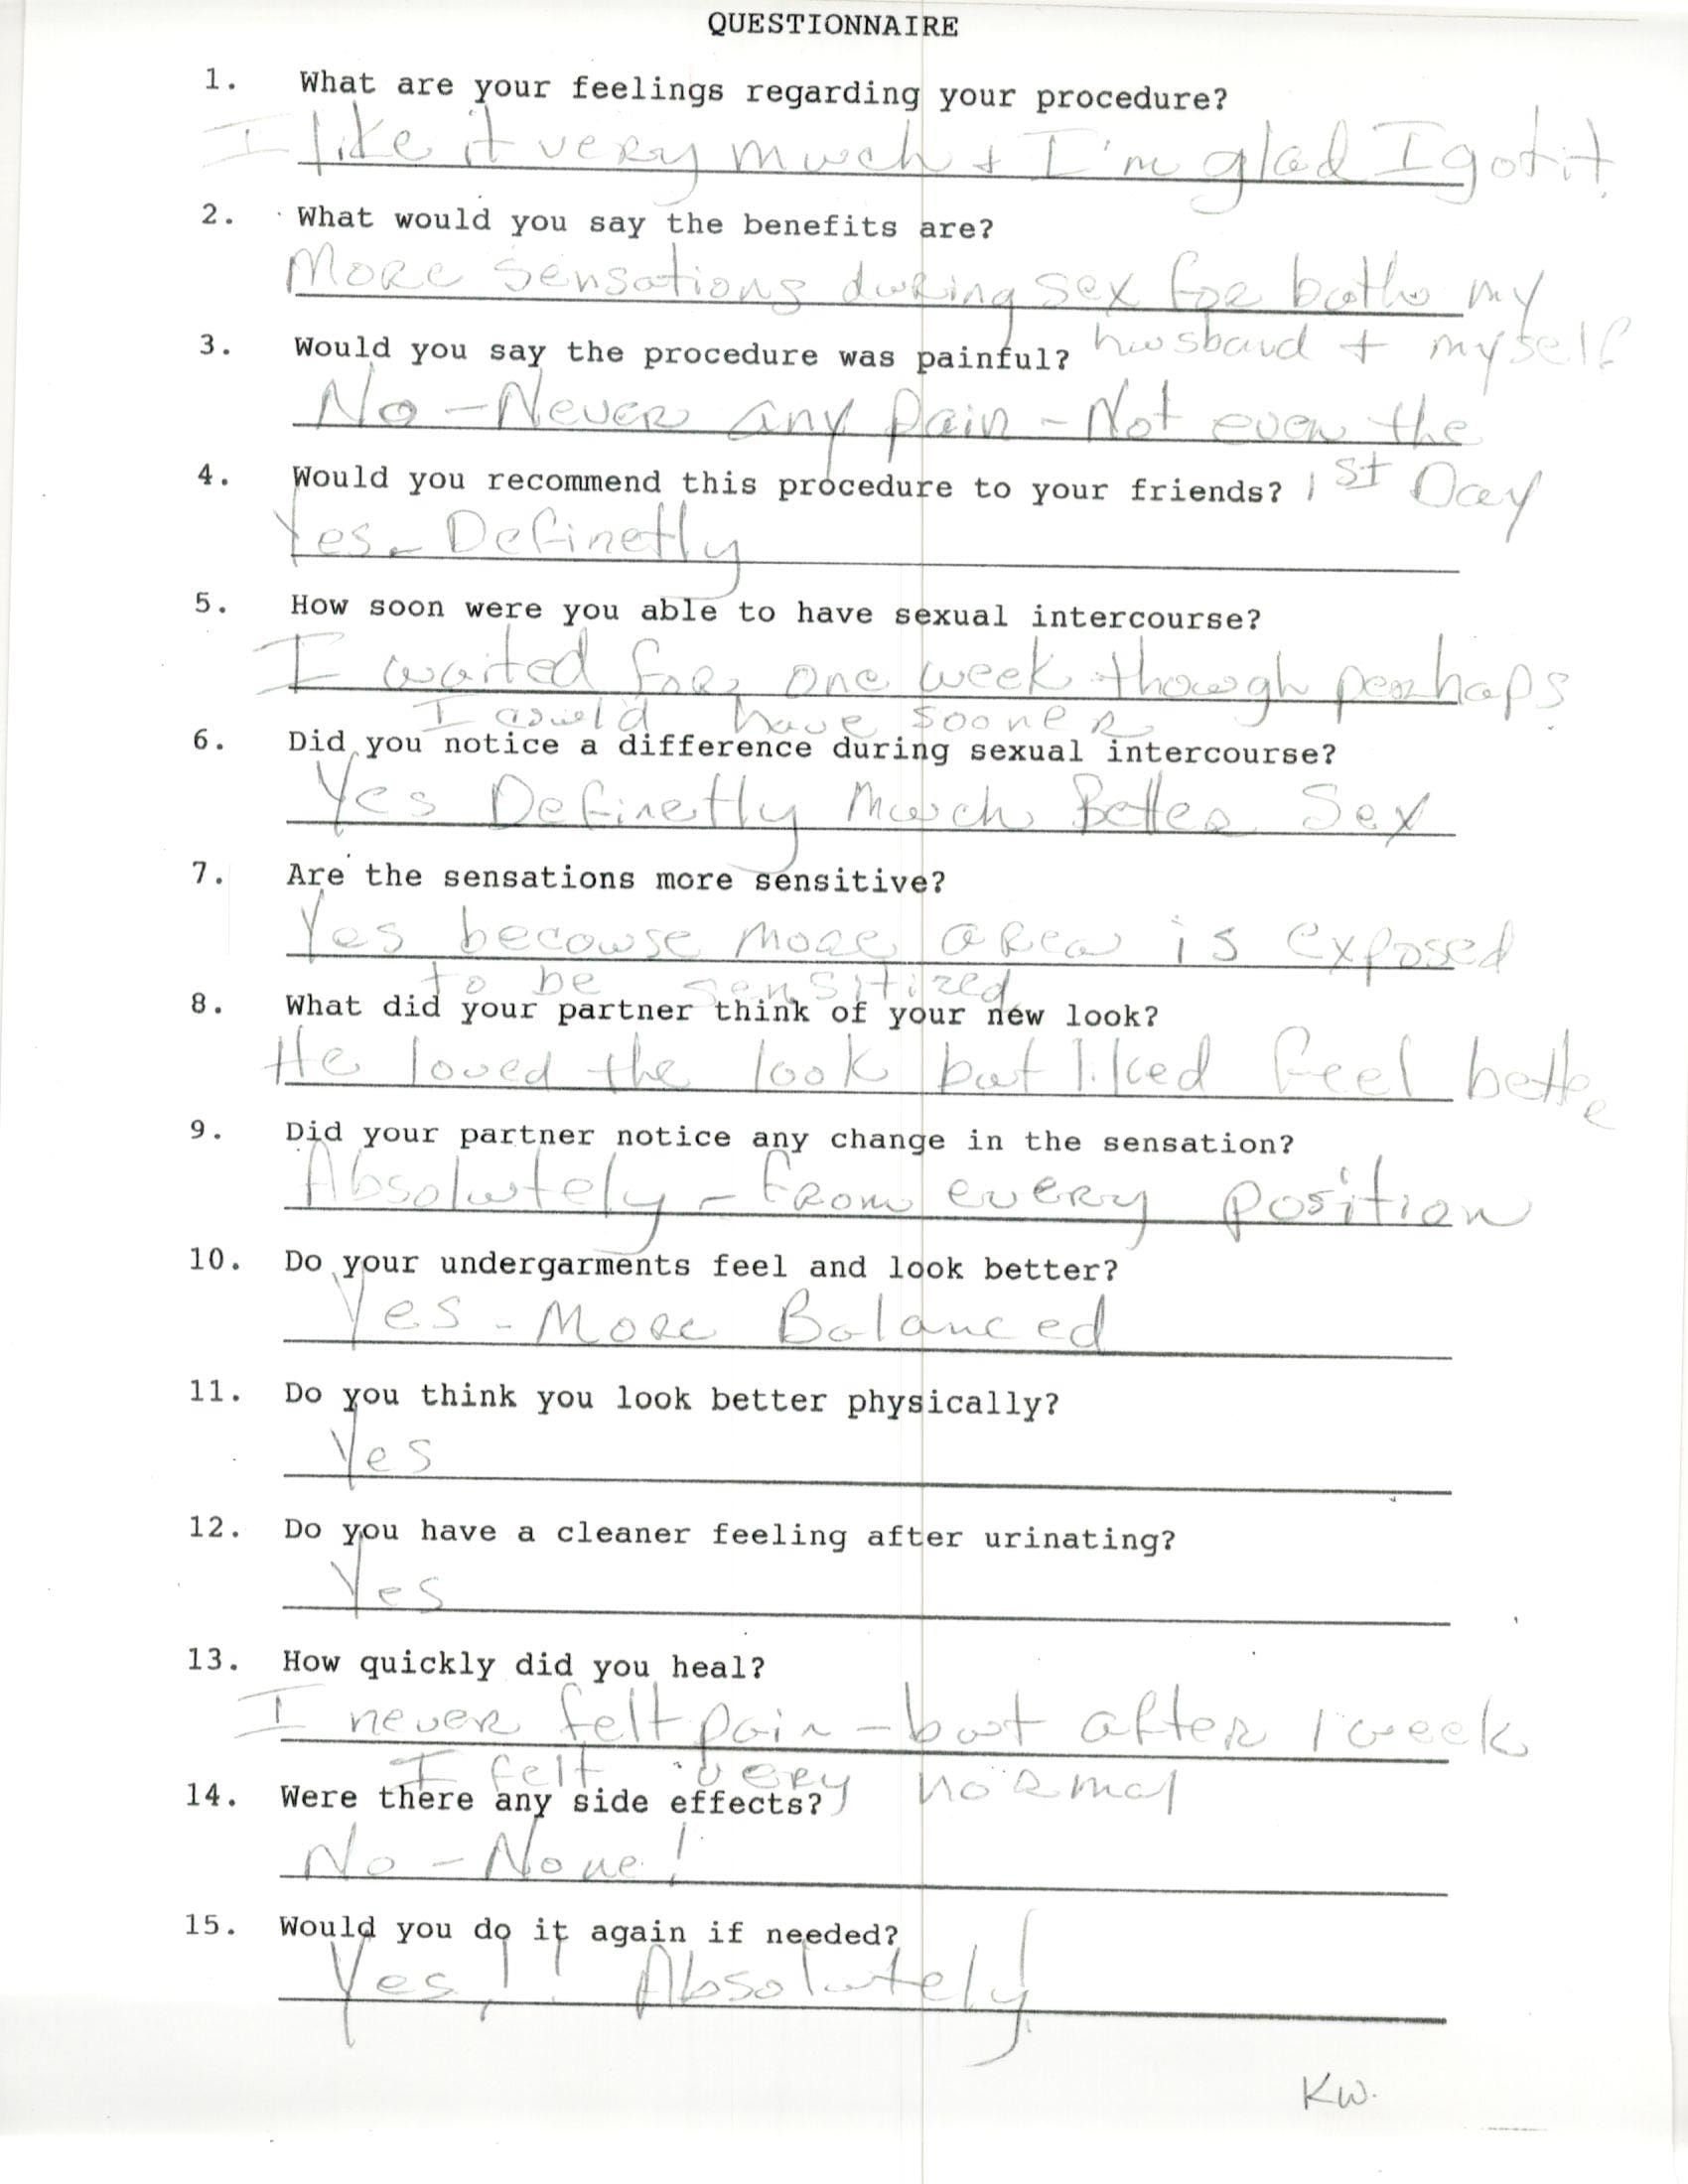 QUESTIONNAIRE
1. What are your feelings regarding your procedure?
I like it very much + I'm glad I got it.
2. What would you say the benefits are?
More sensations during sex for both my
husband + myself
3. Would you say the procedure was painful?
No - Never any pain - Not even the
1st Day
4. Would you recommend this procedure to your friends?
Yes - Definetly
5. How soon were you able to have sexual intercourse?
I waited for one week though perhaps
I could have sooner
6. Did you notice a difference during sexual intercourse?
Yes Definetly Much Better Sex
7. Are the sensations more sensitive?
Yes because more area is exposed
to be sensitized
8. What did your partner think of your new look?
He loved the look but liked feel bette
9. Did your partner notice any change in the sensation?
Absolutely - From every position
10. Do your undergarments feel and look better?
Yes - More Balanced
11. Do you think you look better physically?
Yes
12. Do you have a cleaner feeling after urinating?
Yes
13. How quickly did you heal?
I never felt pain - but after 1 week
I felt very normal
14. Were there any side effects?
No - None!
15. Would you do it again if needed?
Yes!! Absolutely
KW.